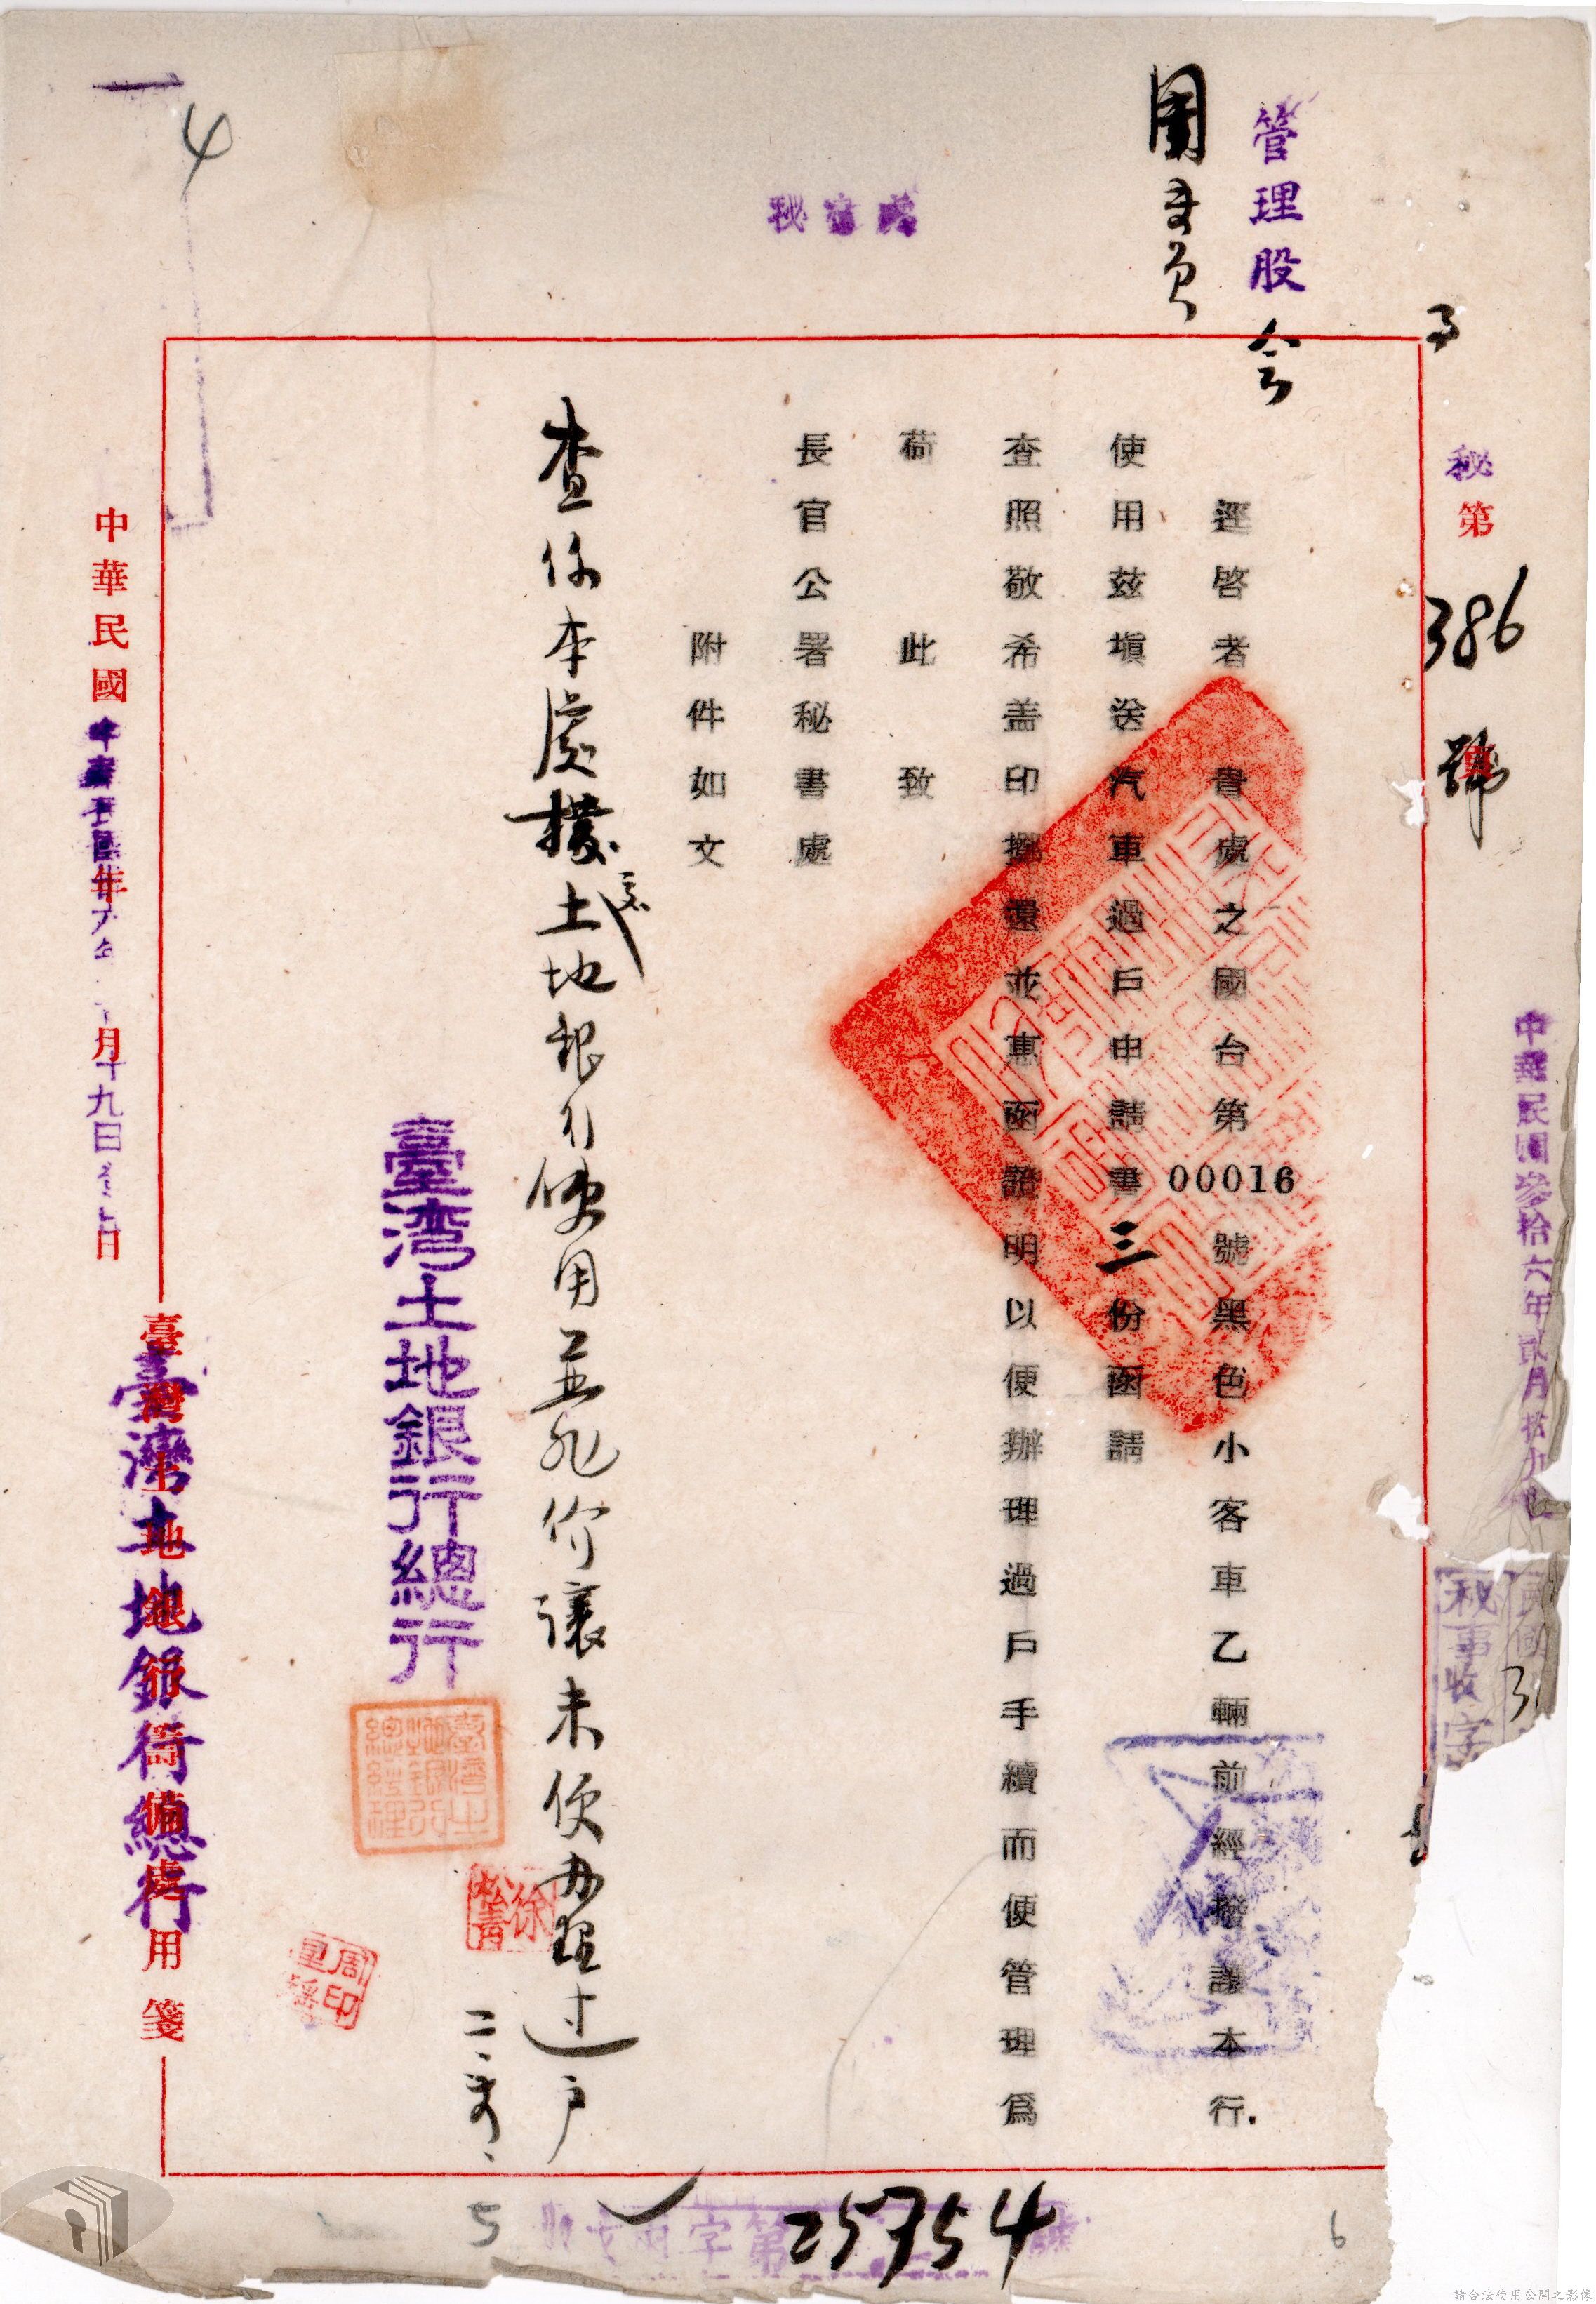 中華民國參拾六年貳月拾九日
秘第386號
管理股会
逕啓者 貴處之國台第00016號黑色小客車乙輛前經撥讓本行
使用茲塡送汽車過戶申請書三份函請
查照敬希盖印擲還並惠函證明以便辦理過戶手續而便管理爲
荷 此致
長官公署秘書處
附件如文
秘書處
查係本處撥土地銀行使用並非价讓未便办理过戶
臺湾土地銀行總行
臺灣土地銀行總經理
徐
周印
中華民國
月十九日
臺灣土地銀行總行
用箋
4
5
25754
6
字第
請合法使用公開之影像